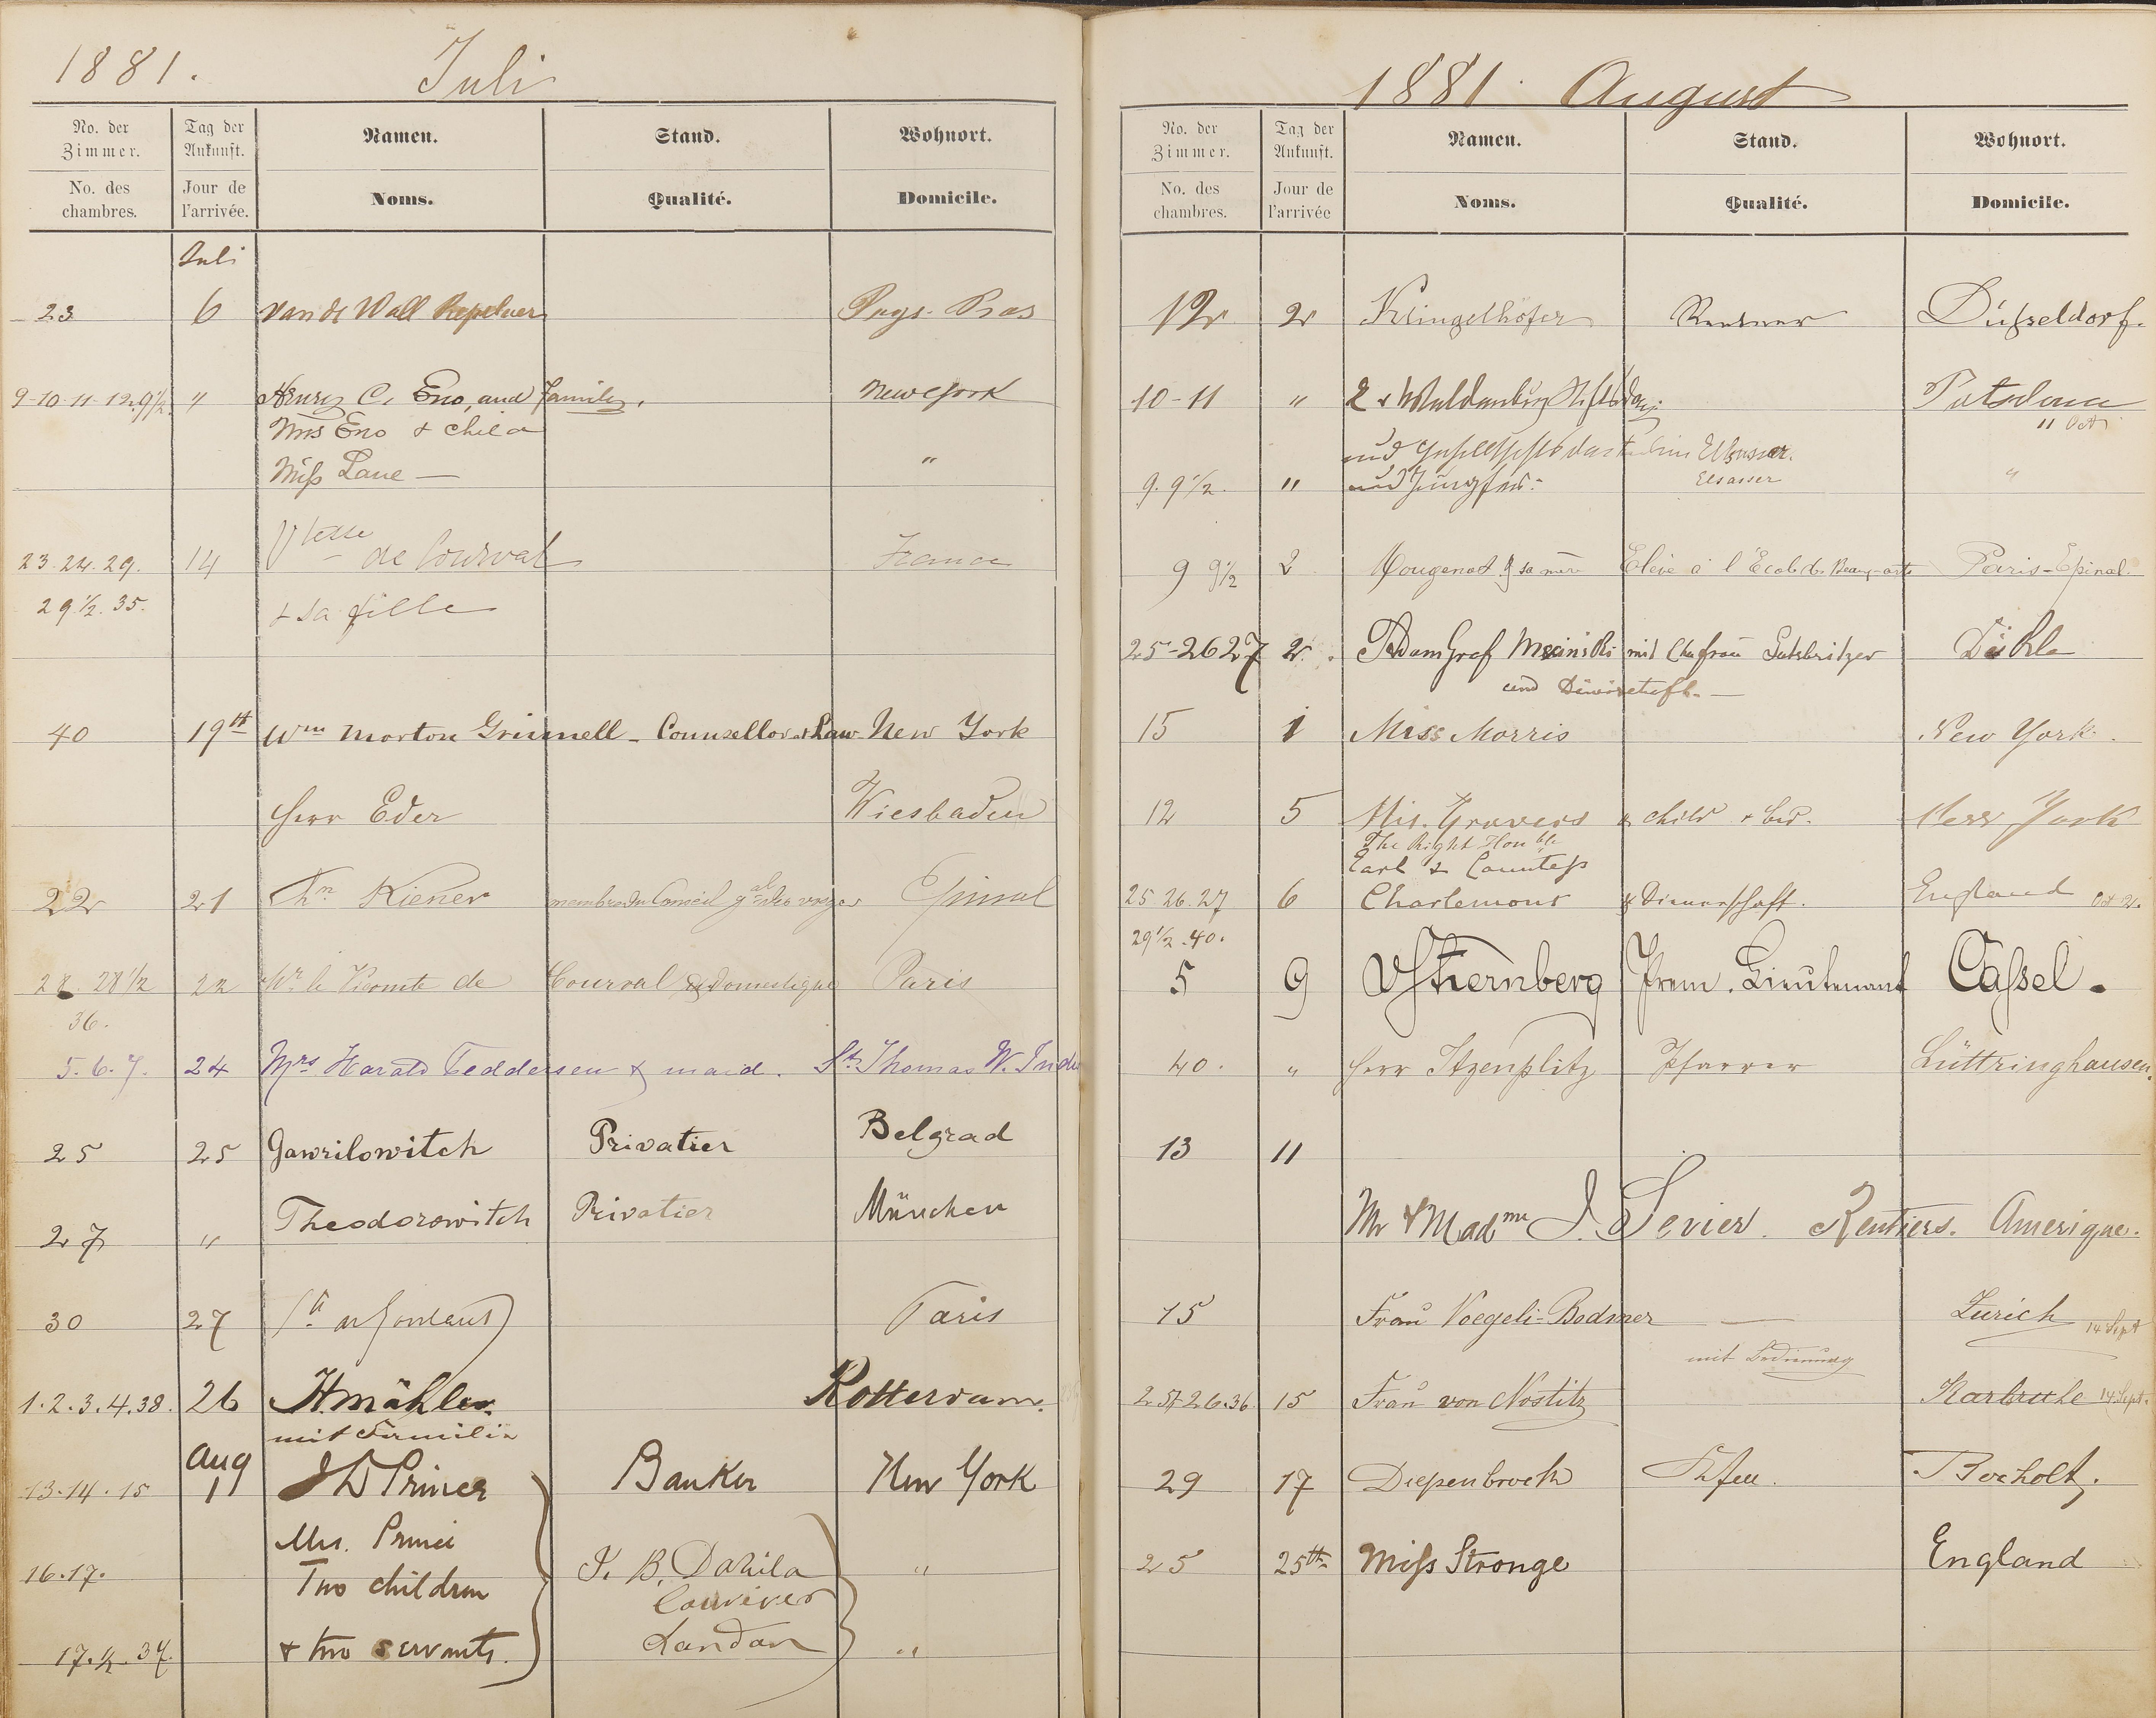 1881. Juli
No. der Zimmer. Tag der Ankunft. Namen. Stand. Wohnort.
No. des chambres. Jour de l'arrivée. Noms. Qualité. Domicile.
Juli
23 6 van de Wall Repelaer Pays-Bas
9-10-11-12.9½. " Henry C. Eno, and family. New York
Mrs Eno & child
Miss Lane — "
23.24.29. 14 Vtesse de Courval France
29½.35. & sa fille
40 19th Wm Morton Grinnell - Counsellor at Law New York
Herr Eder Wiesbaden
22 21 Chn Kiener membre du Conseil gal des vosges Epinal
28. 28½ 22 Mr le Vicomte de Courval & Domestique Paris
36.
5.6.7. 24 Mrs Harald Feddersen & maid. St. Thomas W. Indie
25 25 Gawrilowitch Privatier Belgrad
27 " Theodorowitch Privatier München
30 27 Paris
1.2.3.4.38. 26 H. Mähler Rotterdam.
mit Familie
Aug
13.14.15 1 JD Prince Banker New York
Mrs. Prince
16.17. Two children J. B. Davila "
Couvives
17.½.37. & two servants. Landau "
1881. August
No. der Zimmer. Tag der Ankunft. Namen. Stand. Wohnort.
No. des chambres. Jour de l'arrivée Noms. Qualité. Domicile.
12 2 Klingelhöfer Rentner Düsseldorf.
10-11 " v Waldenburg Potsdam
11 Oct
und Elsasser.
9. 9½. " und Jungfer. Elsasser "
9 9½ 2 Mougenot & sa mère Elève à l'Ecole des Beaux-arts Paris-Epinal.
25-26 27 2. Adam Graf Mecinski mit Ehefrau Gutsbesitzer
und Dienerschaft. —
15 1 Miss Morris New York.
12 5 Mis. Travers & child & bed. New York
The Right Honble
Earl & Countess
25.26.27 6 Charlemont & Dienerschaft. England
29½.40.
5 9 v Stiernberg Prem. Lieutenant Cassel.
40. " Herr Itzenplitz Pfarrer Lüttringhausen.
13 11
Mr & Madme J. Sevier. Rentiers. Amerique.
15 Frau Voegeli-Bodmer — Zurich 14 Sept
mit Bedienung
25 26.36 15 Frau von Nostitz Karlsruhe 14 Sept.
29 17 Diepenbrock Bocholt.
25 25th Miss Stronge England